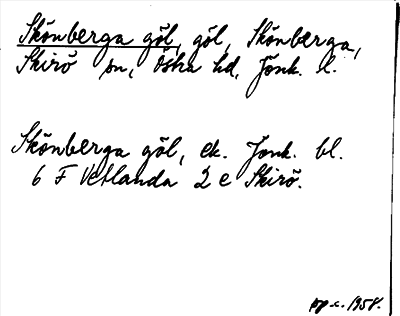 Skönberga göl, göl, Skönberga,
Skirö sn, Östra hd, Jönk. l.
Skönberga göl, ek. Jönk. bl.
6 F Vetlanda 2 e Skirö.
1958.